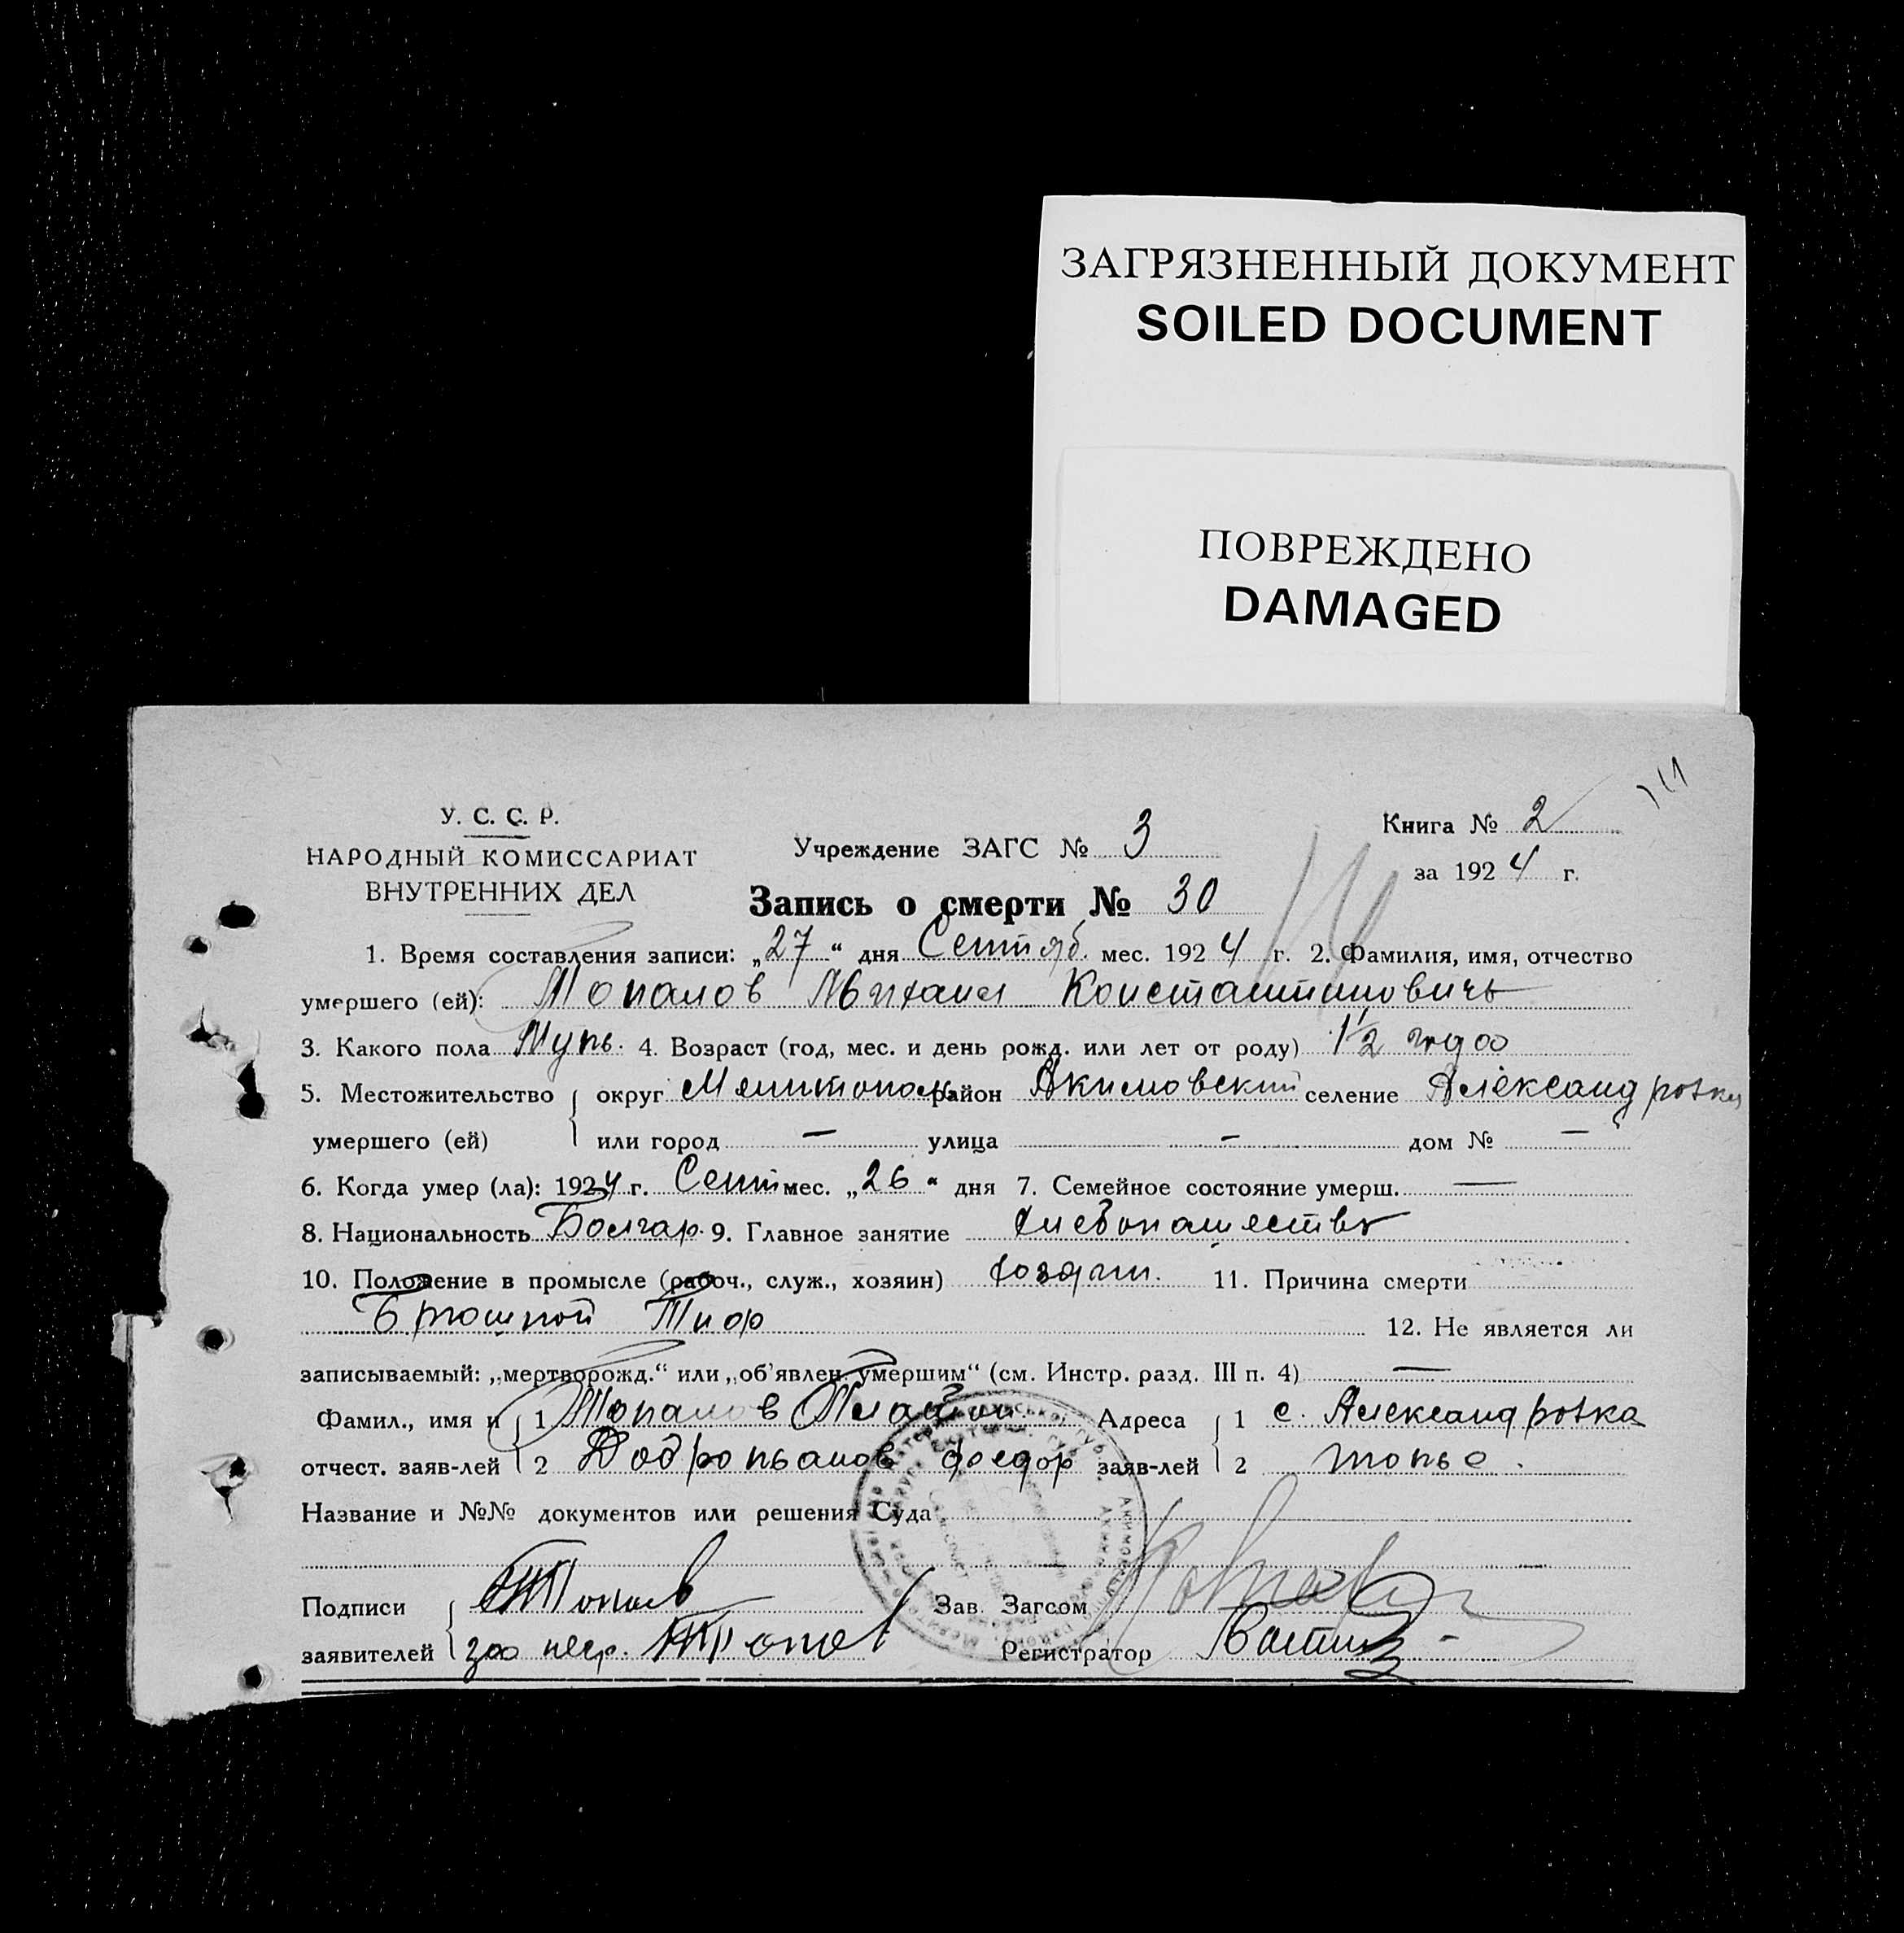 ЗАГРЯЗНЕННЫЙ ДОКУМЕНТ
SOILED DOCUMENT
ПОВРЕЖДЕНО
DAMAGED
У. С. С. Р.
НАРОДНЫЙ КОМИССАРИАТ
ВНУТРЕННИХ ДЕЛ
Учреждение ЗАГС № 3
Книга № 2
за 1924 г.
Запись о смерти № 30
1. Время составления записи: „27“ дня Сентяб. мес. 1924 г. 2. Фамилия, имя, отчество
умершего (ей): Топалов Михаил Константиновичь
3. Какого пола Муж. 4. Возраст (год, мес. и день рожд. или лет от роду) 1 1/2 года
5. Местожительство округ Мелитопол район Акимовский селение Александровка
умершего (ей) или город — улица — дом № —
6. Когда умер (ла): 1924 г. Сент мес. „26“ дня 7. Семейное состояние умерш. —
8. Национальность Болгар. 9. Главное занятие хлебопашество
10. Положение в промысле (рабоч., служ., хозяин) 11. Причина смерти
Брюшной Тиф
12. Не является ли
записываемый: „мертворожд.“ или „об'явлен. умершим“ (см. Инстр. разд. III п. 4) —
Фамил., имя и 1 Топалов Адреса 1 с. Александровка
отчест. заяв-лей 2 Федор заяв-лей 2 тоже.
Название и №№ документов или решения Суда
Подписи Зав. Загсом
заявителей за негр. Регистратор